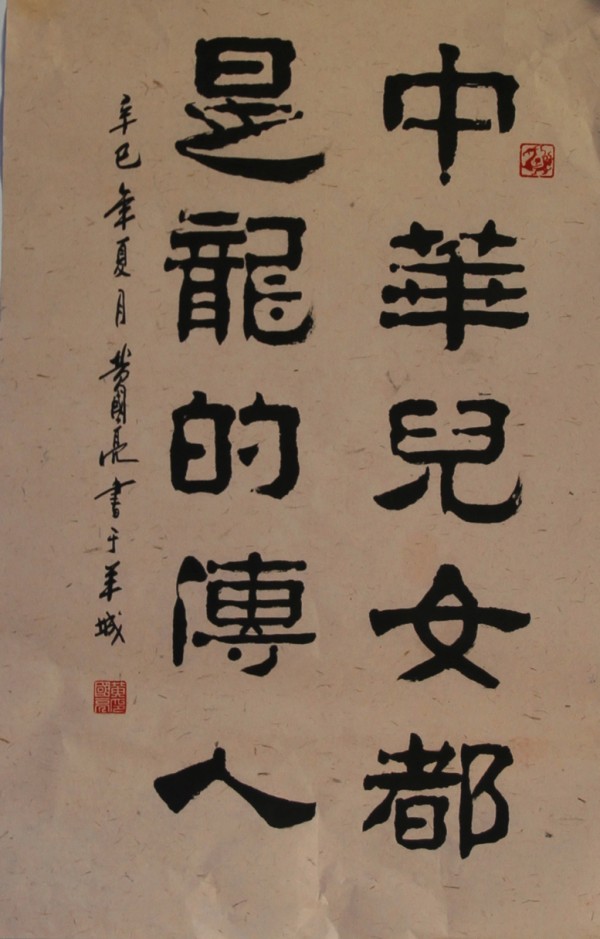 中華兒女都
是龍的傳人
辛巳年夏月黄國亮書于羊城